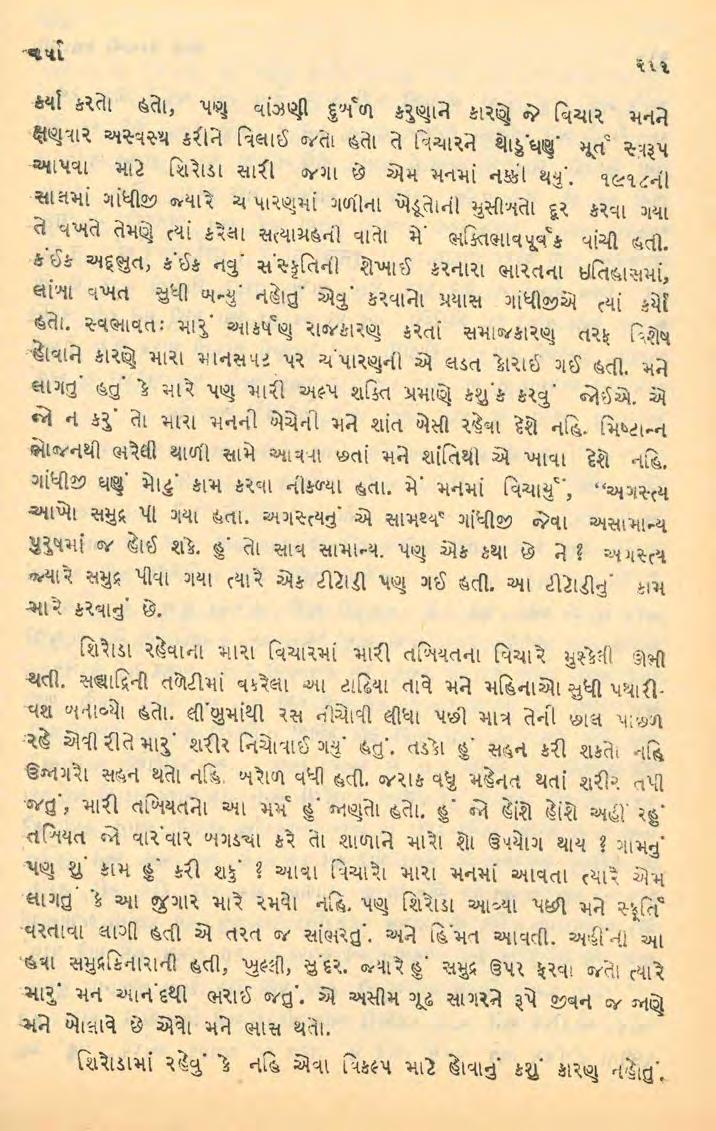 વર્ષા
૨૧૧
કર્યા કરતો હતો, પણ વાંઝણી દુર્બળ કરુણાને કારણે જે વિચાર મનને
ક્ષણવાર અસ્વસ્થ કરીને વિલાઈ જતો હતો તે વિચારને થોડુંઘણું મૂર્ત સ્વરૂપ
આપવા માટે શિરોડા સારી જગા છે એમ મનમાં નક્કી થયું. ૧૯૧૮ની
સાલમાં ગાંધીજી જ્યારે ચંપારણમાં ગળીના ખેડૂતોની મુસીબતો દૂર કરવા ગયા
તે વખતે તેમણે ત્યાં કરેલા સત્યાગ્રહની વાતો મેં ભક્તિભાવપૂર્વક વાંચી હતી.
કંઈક અદ્ભુત, કંઈક નવું સંસ્કૃતિની શેખાઈ કરનારા ભારતના ઇતિહાસમાં,
લાંબા વખત સુધી બન્યું નહોતું એવું કરવાનો પ્રયાસ ગાંધીજીએ ત્યાં કર્યો
હતો. સ્વભાવતઃ મારું આકર્ષણ રાજકારણ કરતાં સમાજકારણ તરફ વિશેષ
હોવાને કારણે મારા માનસપટ પર ચંપારણની એ લડત કોરાઈ ગઈ હતી. મને
લાગતું હતું કે મારે પણ મારી અલ્પ શક્તિ પ્રમાણે કશુંક કરવું જોઈએ. એ
જો ન કરું તો મારા મનની બેચેની મને શાંત બેસી રહેવા દેશે નહિ. મિષ્ટાન્ન
ભોજનથી ભરેલી થાળી સામે આવવા છતાં મને શાંતિથી એ ખાવા દેશે નહિ.
ગાંધીજી ઘણું મોટું કામ કરવા નીકળ્યા હતા. મેં મનમાં વિચાર્યું, “અગસ્ત્ય
આખો સમુદ્ર પી ગયા હતા. અગસ્ત્યનું એ સામર્થ્ય ગાંધીજી જેવા અસામાન્ય
પુરુષમાં જ હોઈ શકે. હું તો સાવ સામાન્ય. પણ એક કથા છે ને? અગસ્ત્ય
જ્યારે સમુદ્ર પીવા ગયા ત્યારે એક ટીટોડી પણ ગઈ હતી. આ ટીટોડીનું કામ
મારે કરવાનું છે.
શિરોડા રહેવાના મારા વિચારમાં મારી તબિયતના વિચારે મુશ્કેલી ઊભી
થતી. સહ્યાદ્રિની તળેટીમાં વકરેલા આ ટાઢિયા તાવે મને મહિનાઓ સુધી પથારી-
વશ બનાવ્યો હતો. લીંબુમાંથી રસ નીચોવી લીધા પછી માત્ર તેની છાલ પાછળ
રહે એવી રીતે મારું શરીર નિચોવાઈ ગયું હતું. તડકો હું સહન કરી શકતો નહિ
ઉજાગરો સહન થતો નહિ. બરોળ વધી હતી. જરાક વધુ મહેનત થતાં શરીર તપી
જતું, મારી તબિયતનો આ મર્મ હું જાણતો હતો. હું જો હોંશે હોંશે અહીં રહું
તબિયત જો વારંવાર બગડ્યા કરે તો શાળાને મારો શો ઉપયોગ થાય ? ગામનું
પણ શું કામ હું કરી શકું ? આવા વિચારો મારા મનમાં આવતા ત્યારે એમ
લાગતું કે આ જુગાર મારે રમવો નહિ. પણ શિરોડા આવ્યા પછી મને સ્ફૂર્તિ
વરતાવા લાગી હતી એ તરત જ સાંભરતું. અને હિંમત આવતી. અહીંની આ
હવા સમુદ્રકિનારાની હતી, ખુલ્લી, સુંદર. જ્યારે હું સમુદ્ર ઉપર ફરવા જતો ત્યારે
મારું મન આનંદથી ભરાઈ જતું. એ અસીમ ગૂઢ સાગરને રૂપે જીવન જ જાણે
મને બોલાવે છે એવો મને ભાસ થતો.
શિરોડામાં રહેવું કે નહિ એવા વિકલ્પ માટે હોવાનું કશું કારણ નહોતું.